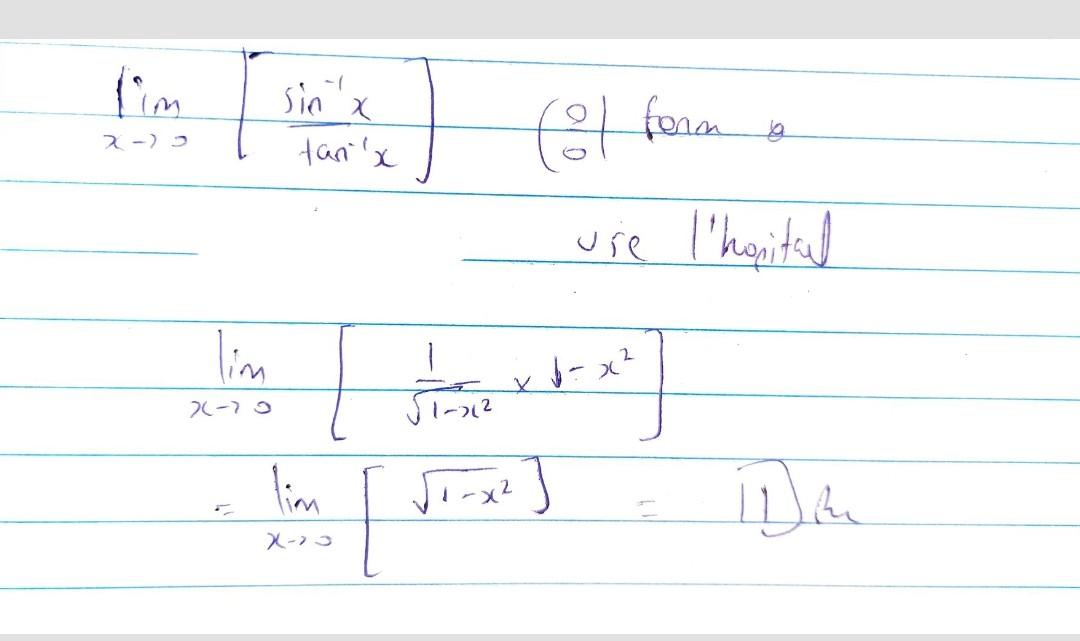 lim x→0 [ sin⁻¹x / tan⁻¹x ] (0/0) form
use l'hopital
lim x→0 [ 1/√1-x² × 1-x² ]
= lim x→0 [ √1-x² ] = 1